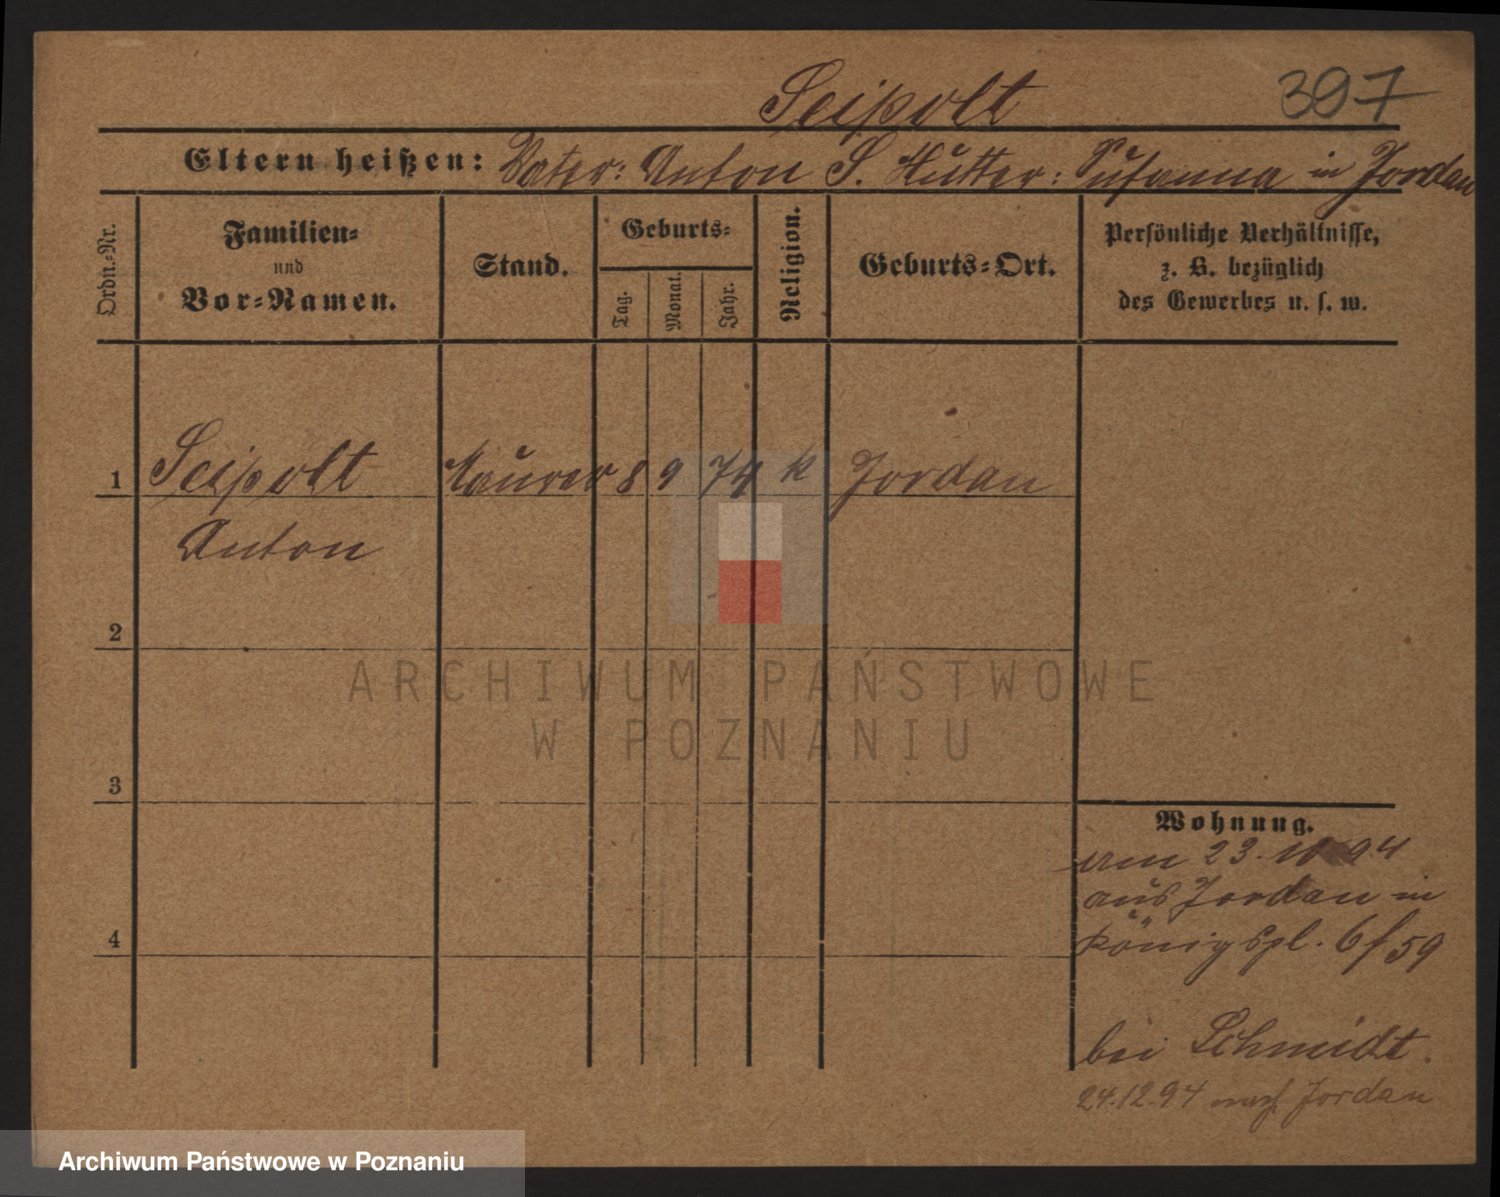 Seipolt 397
Eltern heißen: Vater: Anton S. Mutter: Susanna in Jordan
Ordn.-Nr.
Familien-
und
Vor-Namen.
Stand.
Geburts-
Tag.
Monat.
Jahr.
Religion.
Geburts-Ort.
Persönliche Verhältnisse,
z. B. bezüglich
des Gewerbes u. s. w.
1 Seipolt Maurer 8 9 74 k Jordan
Anton
2
3
4
Wohnung.
am 23. 10 94
aus Jordan in
Königspl. 6/59
bei Schmidt.
24.12.94 nach Jordan
ARCHIWUM PAŃSTWOWE
W POZNANIU
Archiwum Państwowe w Poznaniu